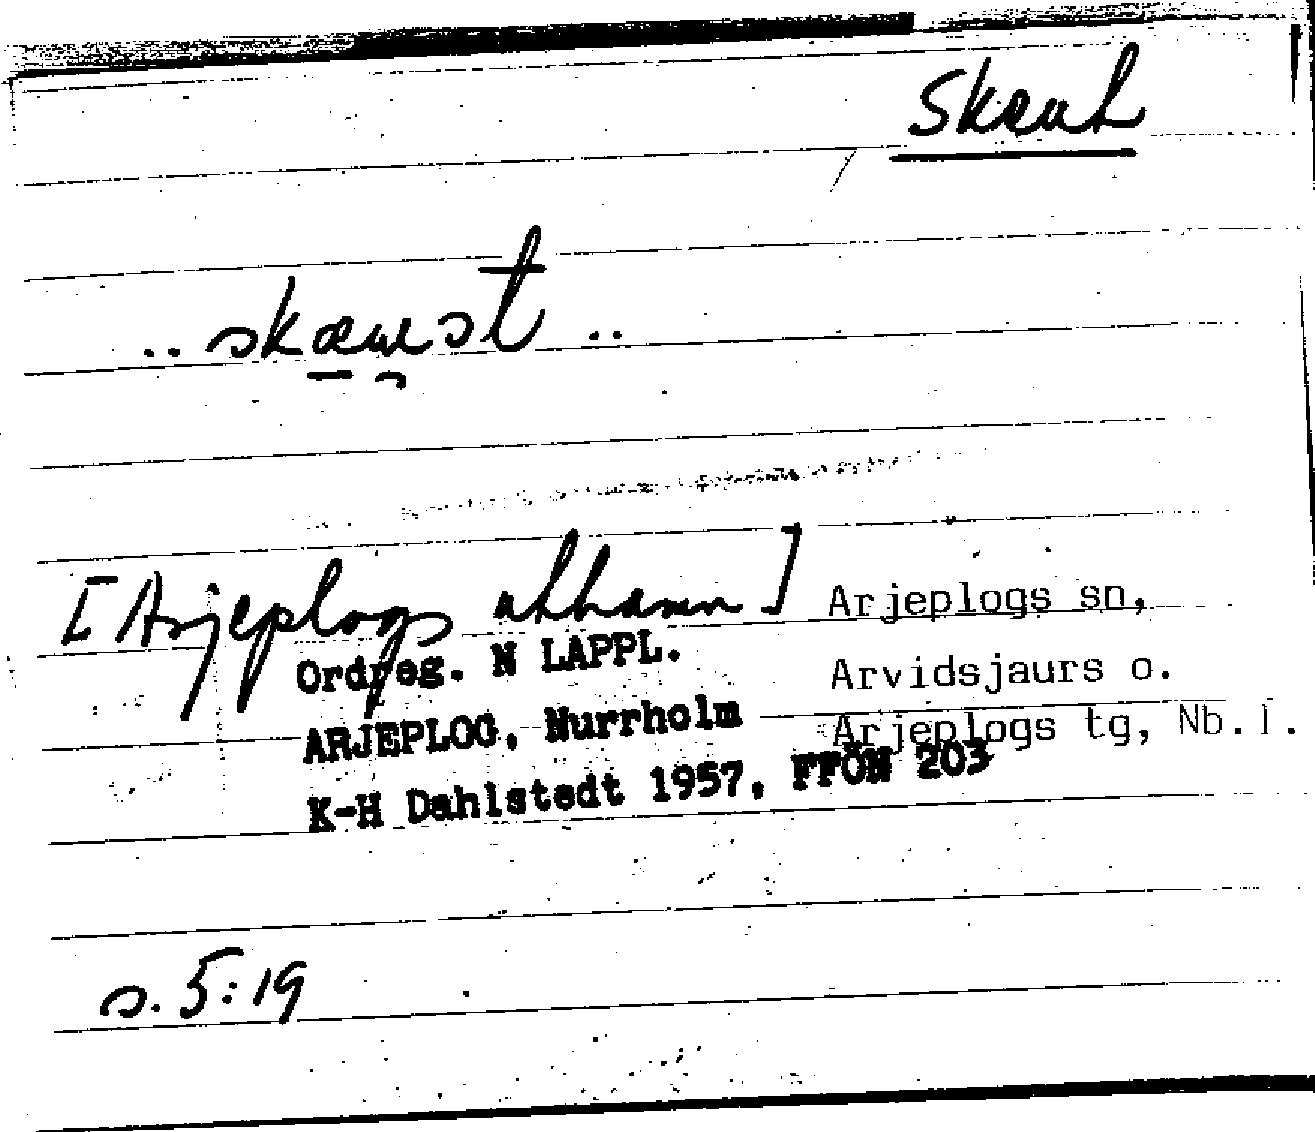 Skral
.. skræst ..
[Arjeplogs allmän]
Arjeplogs sn,
Arvidsjaurs o.
Arjeplogs tg, Nb.l.
Ordreg. N LAPPL.
ARJEPLOG, Nurrholm
K-H Dahlstedt 1957, FFÖN 203
s. 5:19